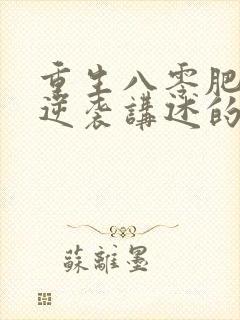 重生八零肥
逆袭講述的
蘇離墨